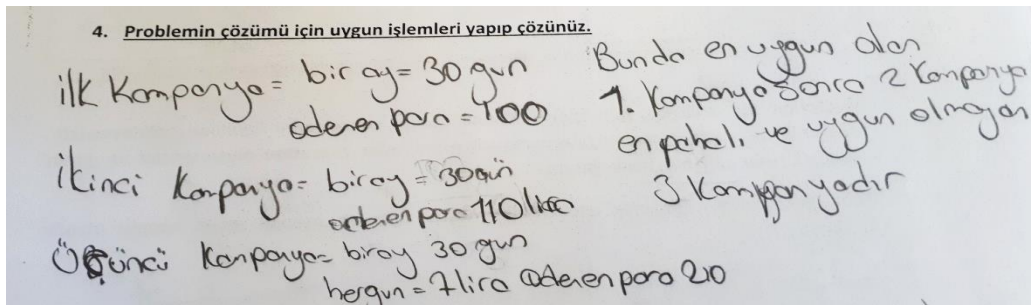 4. Problemin çözümü için uygun işlemleri yapıp çözünüz.
ilk Kampanya = bir ay = 30 gün
ödenen para = 100
ikinci Kampanya = bir ay = 30 gün
ödenen para 110 lira
Üçüncü Kampanya = bir ay 30 gün
hergün = 7 lira ödenen para 210
Bunda en uygun olan
1. Kampanya Sonra 2 Kampanya
en pahalı ve uygun olmayan
3 Kampanyadır